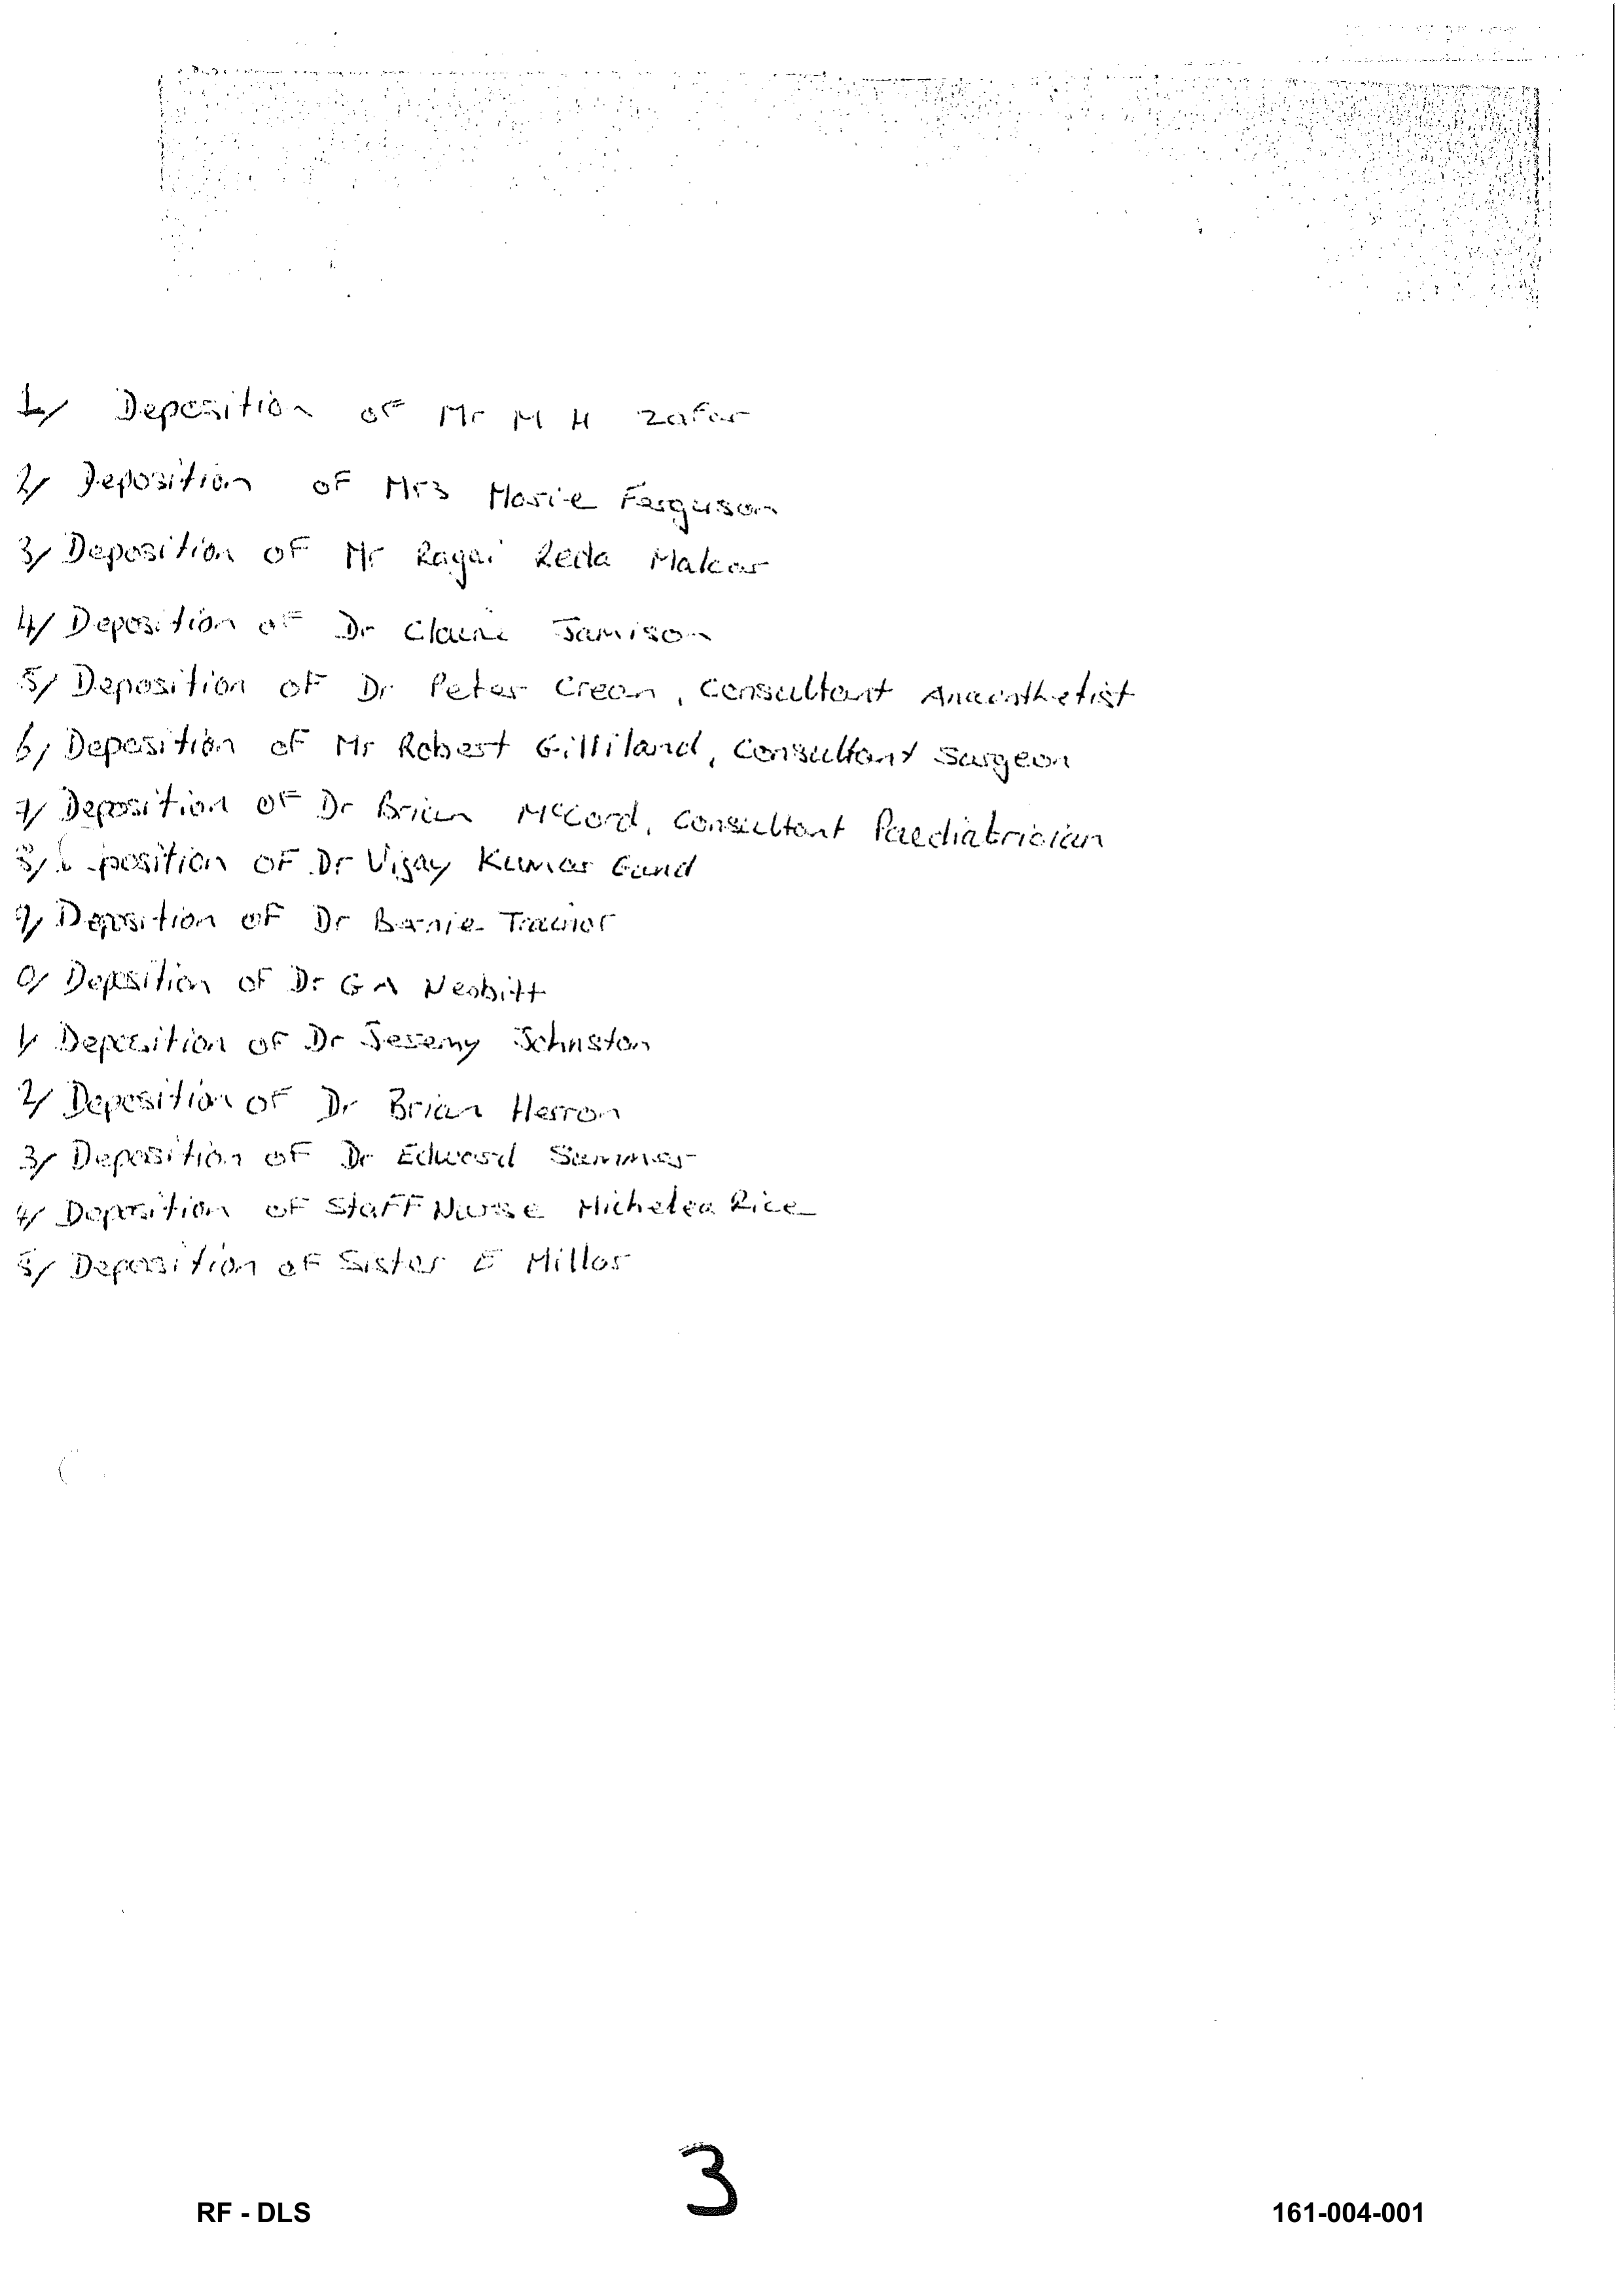 1/ Deposition of Mr M H Zafar
2/ Deposition of Mrs Marie Ferguson
3/ Deposition of Mr Ragai Reda Makar
4/ Deposition of Dr Claire Jamison
5/ Deposition of Dr Peter Crean, Consultant Anaesthetist
6/ Deposition of Mr Robert Gilliland, Consultant Surgeon
7/ Deposition of Dr Brian McCord, Consultant Paediatrician
8/ position of Dr Vijay Kumar Gund
9/ Deposition of Dr Bernie Trainor
0/ Deposition of Dr G A Nesbitt
1/ Deposition of Dr Jeremy Johnston
2/ Deposition of Dr Brian Herron
3/ Deposition of Dr Edward Summer
4/ Deposition of Staff Nurse Michelea Rice
5/ Deposition of Sister E Millar
3
RF - DLS 161-004-001